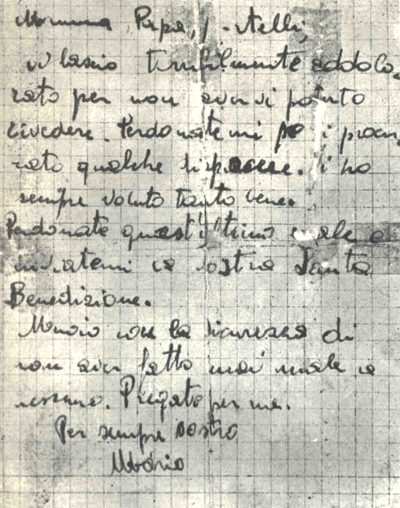 Mamma, Papà, f.telli,
vi lascio terribilmente addolo
rato per non avervi potuto
rivedere. Perdonatemi se vi procu
rato qualche dispiacere. vi ho
sempre voluto tanto bene.
Perdonate quest'ultimo male e
inviatemi la vostra Santa
Benedizione.
Muoio con la sicurezza di
non aver fatto mai male a
nessuno. Pregate per me.
Per sempre vostro